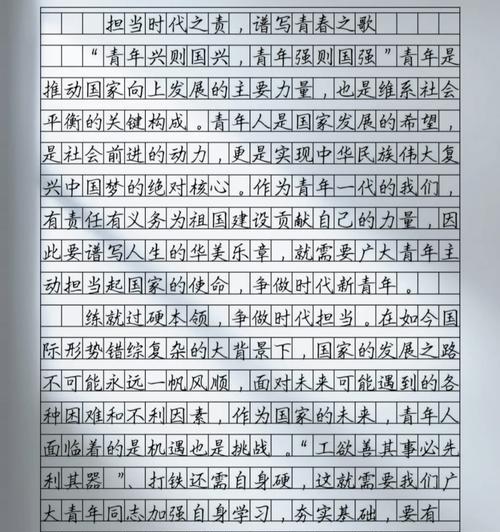 担当时代之责，谱写青春之歌
“青年兴则国兴，青年强则国强”青年是
推动国家向上发展的主要力量，也是维系社会
平衡的关键构成。青年人是国家发展的希望，
是社会前进的动力，更是实现中华民族伟大复
兴中国梦的绝对核心。作为青年一代的我们，
有责任有义务为祖国建设贡献自己的力量，因
此要谱写人生的华美乐章，就需要广大青年主
动担当起国家的使命，争做时代新青年。
练就过硬本领，争做时代担当。在如今国
际形势错综复杂的大背景下，国家的发展之路
不可能永远一帆风顺，面对未来可能遇到的各
种困难和不利因素，作为国家的未来，青年人
面临着的是机遇也是挑战。“工欲善其事必先
利其器”、打铁还需自身硬，这就需要我们广
大青年同志加强自身学习，夯实基础，要有